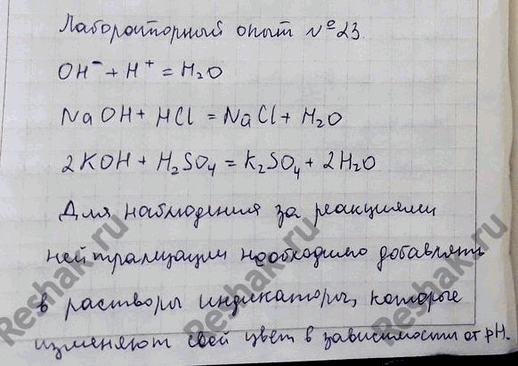 Лабораторный опыт №23.
OH⁻ + H⁺ = H₂O
NaOH + HCl = NaCl + H₂O
2KOH + H₂SO₄ = K₂SO₄ + 2H₂O
Для наблюдения за реакциями
нейтрализации необходимо добавлять
в растворы индикаторы, которые
изменяют свой цвет в зависимости от pH.
Reshak.ru
Reshak.ru
Reshak.ru
Reshak.ru